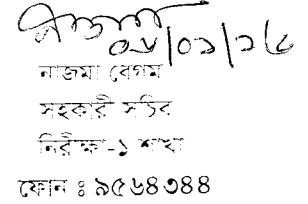 নাজমা বেগম
সহকারী সচিব
নিরীক্ষা-১ শাখা
ফোন : ৯৫৬৪৩৪৪